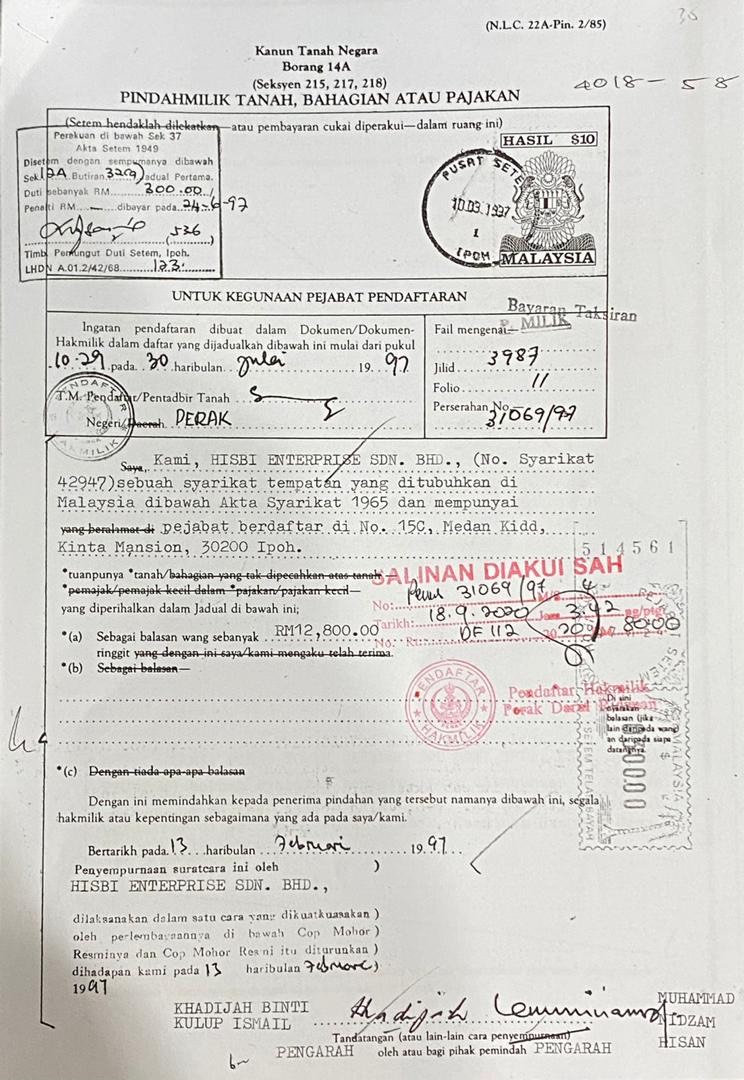 30
(N.L.C. 22A-Pin. 2/85)
Kanun Tanah Negara
Borang 14A
(Seksyen 215, 217, 218)
4018-58
PINDAHMILIK TANAH, BAHAGIAN ATAU PAJAKAN
(Setem hendaklah dilekatkan—atau pembayaran cukai diperakui—dalam ruang ini)
Perakuan di bawah Sek 37
Akta Setem 1949
Disetem dengan sempurnanya dibawah
Sek 12A Butiran 32(a) Jadual Pertama.
Duti sebanyak RM 300.00
Penalti RM — dibayar pada 24-6-97
536
Timb. Pemungut Duti Setem, Ipoh.
LHDN A.01.2/42/68 123
HASIL $10
PUSAT SETEM
10.03.1997
1
IPOH
MALAYSIA
UNTUK KEGUNAAN PEJABAT PENDAFTARAN
Bayaran Taksiran
P. MILIK
Ingatan pendaftaran dibuat dalam Dokumen/Dokumen-
Hakmilik dalam daftar yang dijadualkan dibawah ini mulai dari pukul
10.29 pada 30 haribulan Julai 19 97
T.M. Pendaftar/Pentadbir Tanah
Negeri/Daerah PERAK
PENDAFTAR HAKMILIK
Fail mengenai—
Jilid 3987
Folio 11
Perserahan No. 31069/97
Saya, Kami, HISBI ENTERPRISE SDN. BHD., (No. Syarikat
42947)sebuah syarikat tempatan yang ditubuhkan di
Malaysia dibawah Akta Syarikat 1965 dan mempunyai
yang beralamat di pejabat berdaftar di No. 15C, Medan Kidd,
Kinta Mansion, 30200 Ipoh.
514561
*tuanpunya *tanah/bahagian yang tak dipecahkan atas tanah
*pemajak/pemajak kecil dalam *pajakan/pajakan kecil—
yang diperihalkan dalam Jadual di bawah ini;
SALINAN DIAKUI SAH
No: 31069/97
Tarikh: 18.9.2020 Jam 3.42 pg/ptg
DF 112 2020 80.00
*(a) Sebagai balasan wang sebanyak RM12,800.00
ringgit yang dengan ini saya/kami mengaku telah terima.
*(b) Sebagai balasan—
PENDAFTAR HAKMILIK
Pendaftar Hakmilik
Perak Darul Ridzuan
Di sini
nyatakan
balasan (jika
lain daripada wang)
an daripada siapa
datangnya.
MALAYSIA
*(c) Dengan tiada apa-apa balasan
Dengan ini memindahkan kepada penerima pindahan yang tersebut namanya dibawah ini, segala
hakmilik atau kepentingan sebagaimana yang ada pada saya/kami.
Bertarikh pada 13 haribulan Februari 19 97
Penyempurnaan suratcara ini oleh )
HISBI ENTERPRISE SDN. BHD.,
dilaksanakan dalam satu cara yang dikuatkuasakan )
oleh perlembagaannya di bawah Cop Mohor )
Resminya dan Cop Mohor Resmi itu diturunkan )
dihadapan kami pada 13 haribulan Februari )
1997
KHADIJAH BINTI
KULUP ISMAIL
Khadijah
MUHAMMAD
NIDZAM
HISAN
Tandatangan (atau lain-lain cara penyempurnaan)
PENGARAH oleh atau bagi pihak pemindah PENGARAH